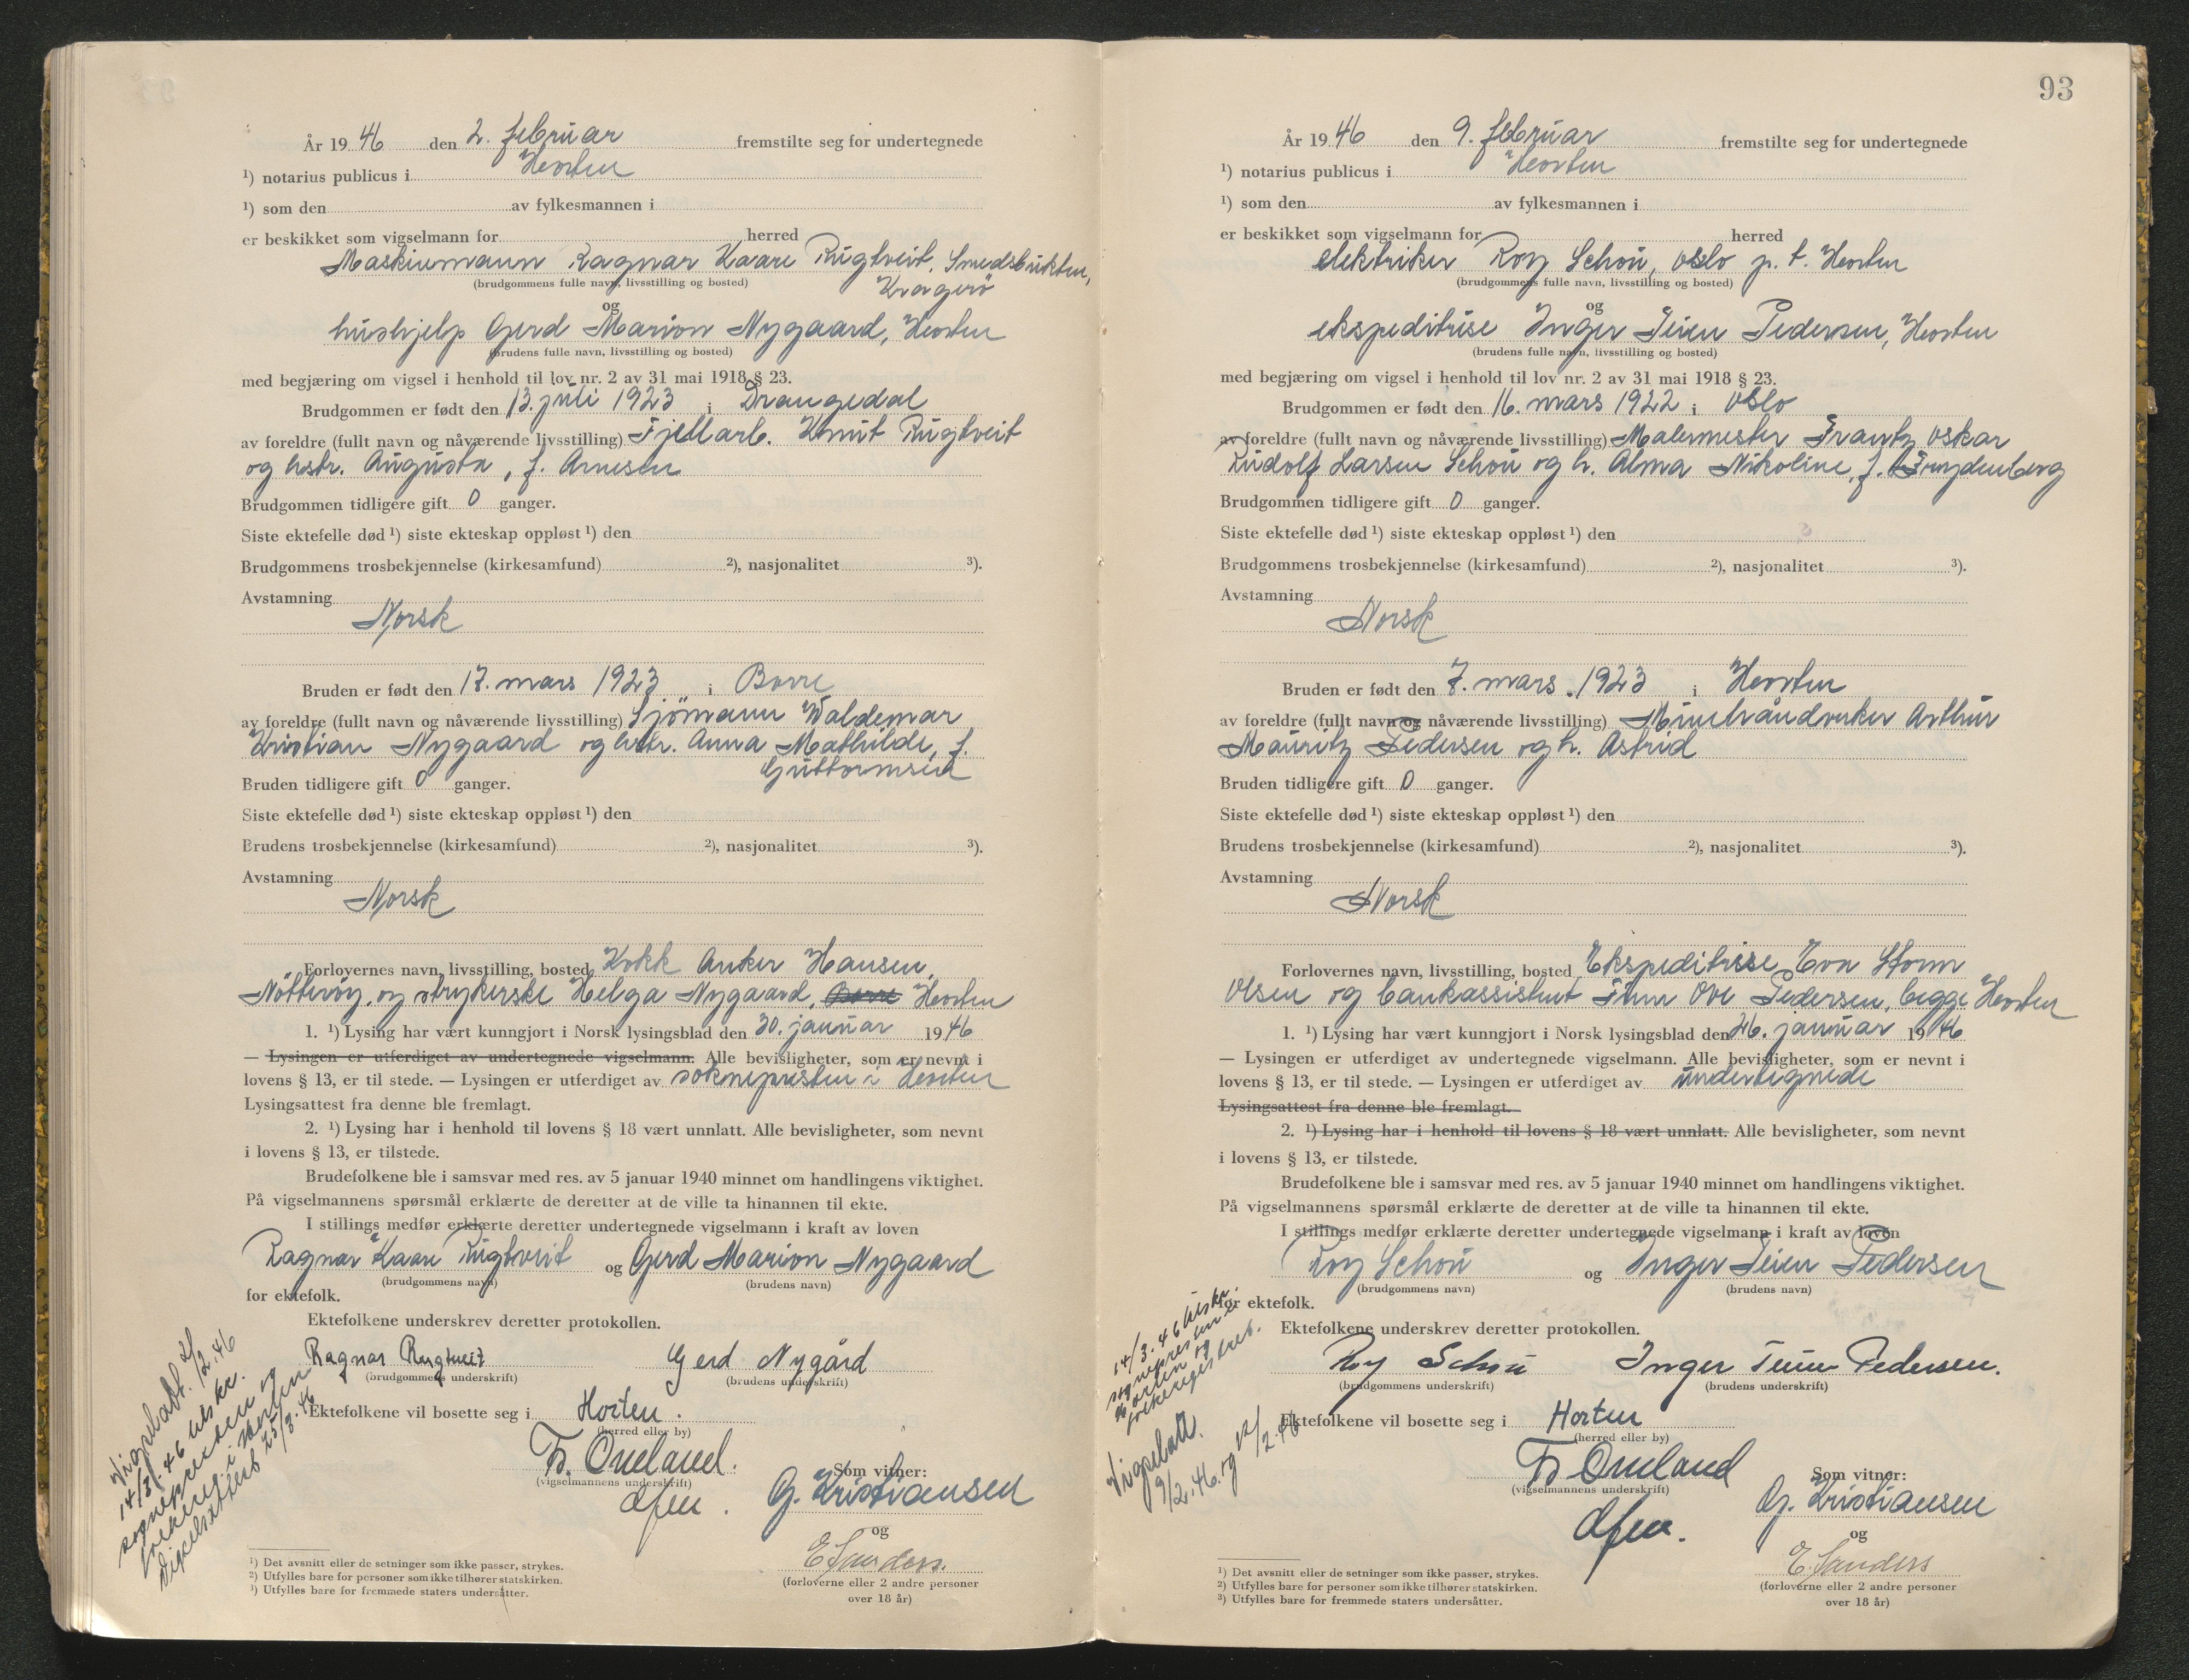 År 19 46 den 2. februar fremstilte seg for undertegnede
¹) notarius publicus i Horten
¹) som den av fylkesmannen i
er beskikket som vigselmann for herred
Maskinmann Ragnar Kaare Rugtveit, Smedsbukten,
(brudgommens fulle navn, livsstilling og bosted) Kragerö
og
hushjelp Gerd Marion Nygaard, Horten
(brudens fulle navn, livsstilling og bosted)
med begjæring om vigsel i henhold til lov nr. 2 av 31 mai 1918 § 23.
Brudgommen er født den 13. juli 1923 i Drangedal
av foreldre (fullt navn og nåværende livsstilling) Fjellarb. Knut Rugtveit
og hstr. Augusta, f. Arnesen
Brudgommen tidligere gift 0 ganger.
Siste ektefelle død ¹) siste ekteskap oppløst ¹) den
Brudgommens trosbekjennelse (kirkesamfund) ²), nasjonalitet ³).
Avstamning
Norsk
Bruden er født den 17. mars 1923 i Borre
av foreldre (fullt navn og nåværende livsstilling) Sjömann Waldemar
Kristian Nygaard og hstr. Anna Mathilde, f.
Guttormsen
Bruden tidligere gift 0 ganger.
Siste ektefelle død ¹) siste ekteskap oppløst ¹) den
Brudens trosbekjennelse (kirkesamfund) ²), nasjonalitet ³).
Avstamning
Norsk
Forlovernes navn, livsstilling, bosted Kokk Anker Hansen,
Nötteröy, og strykerske Helga Nygaard, Borre Horten
1. ¹) Lysing har vært kunngjort i Norsk lysingsblad den 30. januar 1946
— Lysingen er utferdiget av undertegnede vigselmann. Alle bevisligheter, som er nevnt i
lovens § 13, er til stede. — Lysingen er utferdiget av soknepresten i Horten
Lysingsattest fra denne ble fremlagt.
2. ¹) Lysing har i henhold til lovens § 18 vært unnlatt. Alle bevisligheter, som nevnt
i lovens § 13, er tilstede.
Brudefolkene ble i samsvar med res. av 5 januar 1940 minnet om handlingens viktighet.
På vigselmannens spørsmål erklærte de deretter at de ville ta hinannen til ekte.
I stillings medfør erklærte deretter undertegnede vigselmann i kraft av loven
Ragnar Kaare Rugtveit og Gerd Marion Nygaard
(brudgommens navn) (brudens navn)
for ektefolk.
Ektefolkene underskrev deretter protokollen.
Ragnar Rugtveit Gerd Nygård
(brudgommens underskrift) (brudens underskrift)
Ektefolkene vil bosette seg i Horten.
(herred eller by)
Th. Omland.
(vigselmannens underskrift) Som vitner:
G. Kristiansen
og
E Sanders.
(forloverne eller 2 andre personer
over 18 år)
Vigselatt. 2/2.46
14/3.46 utskr.
sognepresten og
folkereg. i Horten
Vigselsattest 25/3.46
¹) Det avsnitt eller de setninger som ikke passer, strykes.
²) Utfylles bare for personer som ikke tilhører statskirken.
³) Utfylles bare for fremmede staters undersåtter.
93
År 19 46 den 9. februar fremstilte seg for undertegnede
¹) notarius publicus i Horten
¹) som den av fylkesmannen i
er beskikket som vigselmann for herred
elektriker Roy Schou, Oslo p. t. Horten
(brudgommens fulle navn, livsstilling og bosted)
og
ekspeditrise Inger Pedersen, Horten
(brudens fulle navn, livsstilling og bosted)
med begjæring om vigsel i henhold til lov nr. 2 av 31 mai 1918 § 23.
Brudgommen er født den 16. mars 1922 i Oslo
av foreldre (fullt navn og nåværende livsstilling) Malermester Frantz Oskar
Rudolf Larsen Schou og h. Alma Nikoline, f. Frydenberg
Brudgommen tidligere gift 0 ganger.
Siste ektefelle død ¹) siste ekteskap oppløst ¹) den
Brudgommens trosbekjennelse (kirkesamfund) ²), nasjonalitet ³).
Avstamning
Norsk
Bruden er født den 7. mars 1923 i Horten
av foreldre (fullt navn og nåværende livsstilling) Minehåndverker Arthur
Mauritz Pedersen og h. Astrid
Bruden tidligere gift 0 ganger.
Siste ektefelle død ¹) siste ekteskap oppløst ¹) den
Brudens trosbekjennelse (kirkesamfund) ²), nasjonalitet ³).
Avstamning
Norsk
Forlovernes navn, livsstilling, bosted Ekspeditrise Eva Storm
Olsen og bankassistent Finn Ove Pedersen, begge Horten
1. ¹) Lysing har vært kunngjort i Norsk lysingsblad den 26. januar 1946
— Lysingen er utferdiget av undertegnede vigselmann. Alle bevisligheter, som er nevnt i
lovens § 13, er til stede. — Lysingen er utferdiget av undertegnede
Lysingsattest fra denne ble fremlagt.
2. ¹) Lysing har i henhold til lovens § 18 vært unnlatt. Alle bevisligheter, som nevnt
i lovens § 13, er tilstede.
Brudefolkene ble i samsvar med res. av 5 januar 1940 minnet om handlingens viktighet.
På vigselmannens spørsmål erklærte de deretter at de ville ta hinannen til ekte.
I stillings medfør erklærte deretter undertegnede vigselmann i kraft av loven
Roy Schou og Inger Pedersen
(brudgommens navn) (brudens navn)
for ektefolk.
Ektefolkene underskrev deretter protokollen.
Roy Schou Inger Pedersen.
(brudgommens underskrift) (brudens underskrift)
Ektefolkene vil bosette seg i Horten
(herred eller by)
Th Omland
(vigselmannens underskrift) Som vitner:
G. Kristiansen
og
E. Sanders
(forloverne eller 2 andre personer
over 18 år)
14/3.46 utskr.
sognepresten i
Horten og
folkeregistret.
Vigselatt.
9/2.46. og 12/2.46
¹) Det avsnitt eller de setninger som ikke passer, strykes.
²) Utfylles bare for personer som ikke tilhører statskirken.
³) Utfylles bare for fremmede staters undersåtter.